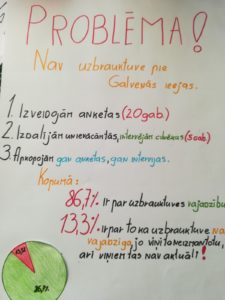 PROBLĒMA!
Nav uzbrauktuve pie
Galvenās ieejas.
1. Izveidojām anketas (20gab.)
2. Izdalījām un ievācām tās, intervējām cilvēkus (5gab.)
3. Apkopojām gan anketas, gan intervijas.
Kopumā:
86,7% ir par uzbrauktuves vajadzību
13,3% ir par to ka uzbrauktuve nav
vajadzīga, jo viņi to neizmantotu,
arī viņiem tas nav aktuāli!
13,3%
86,7%